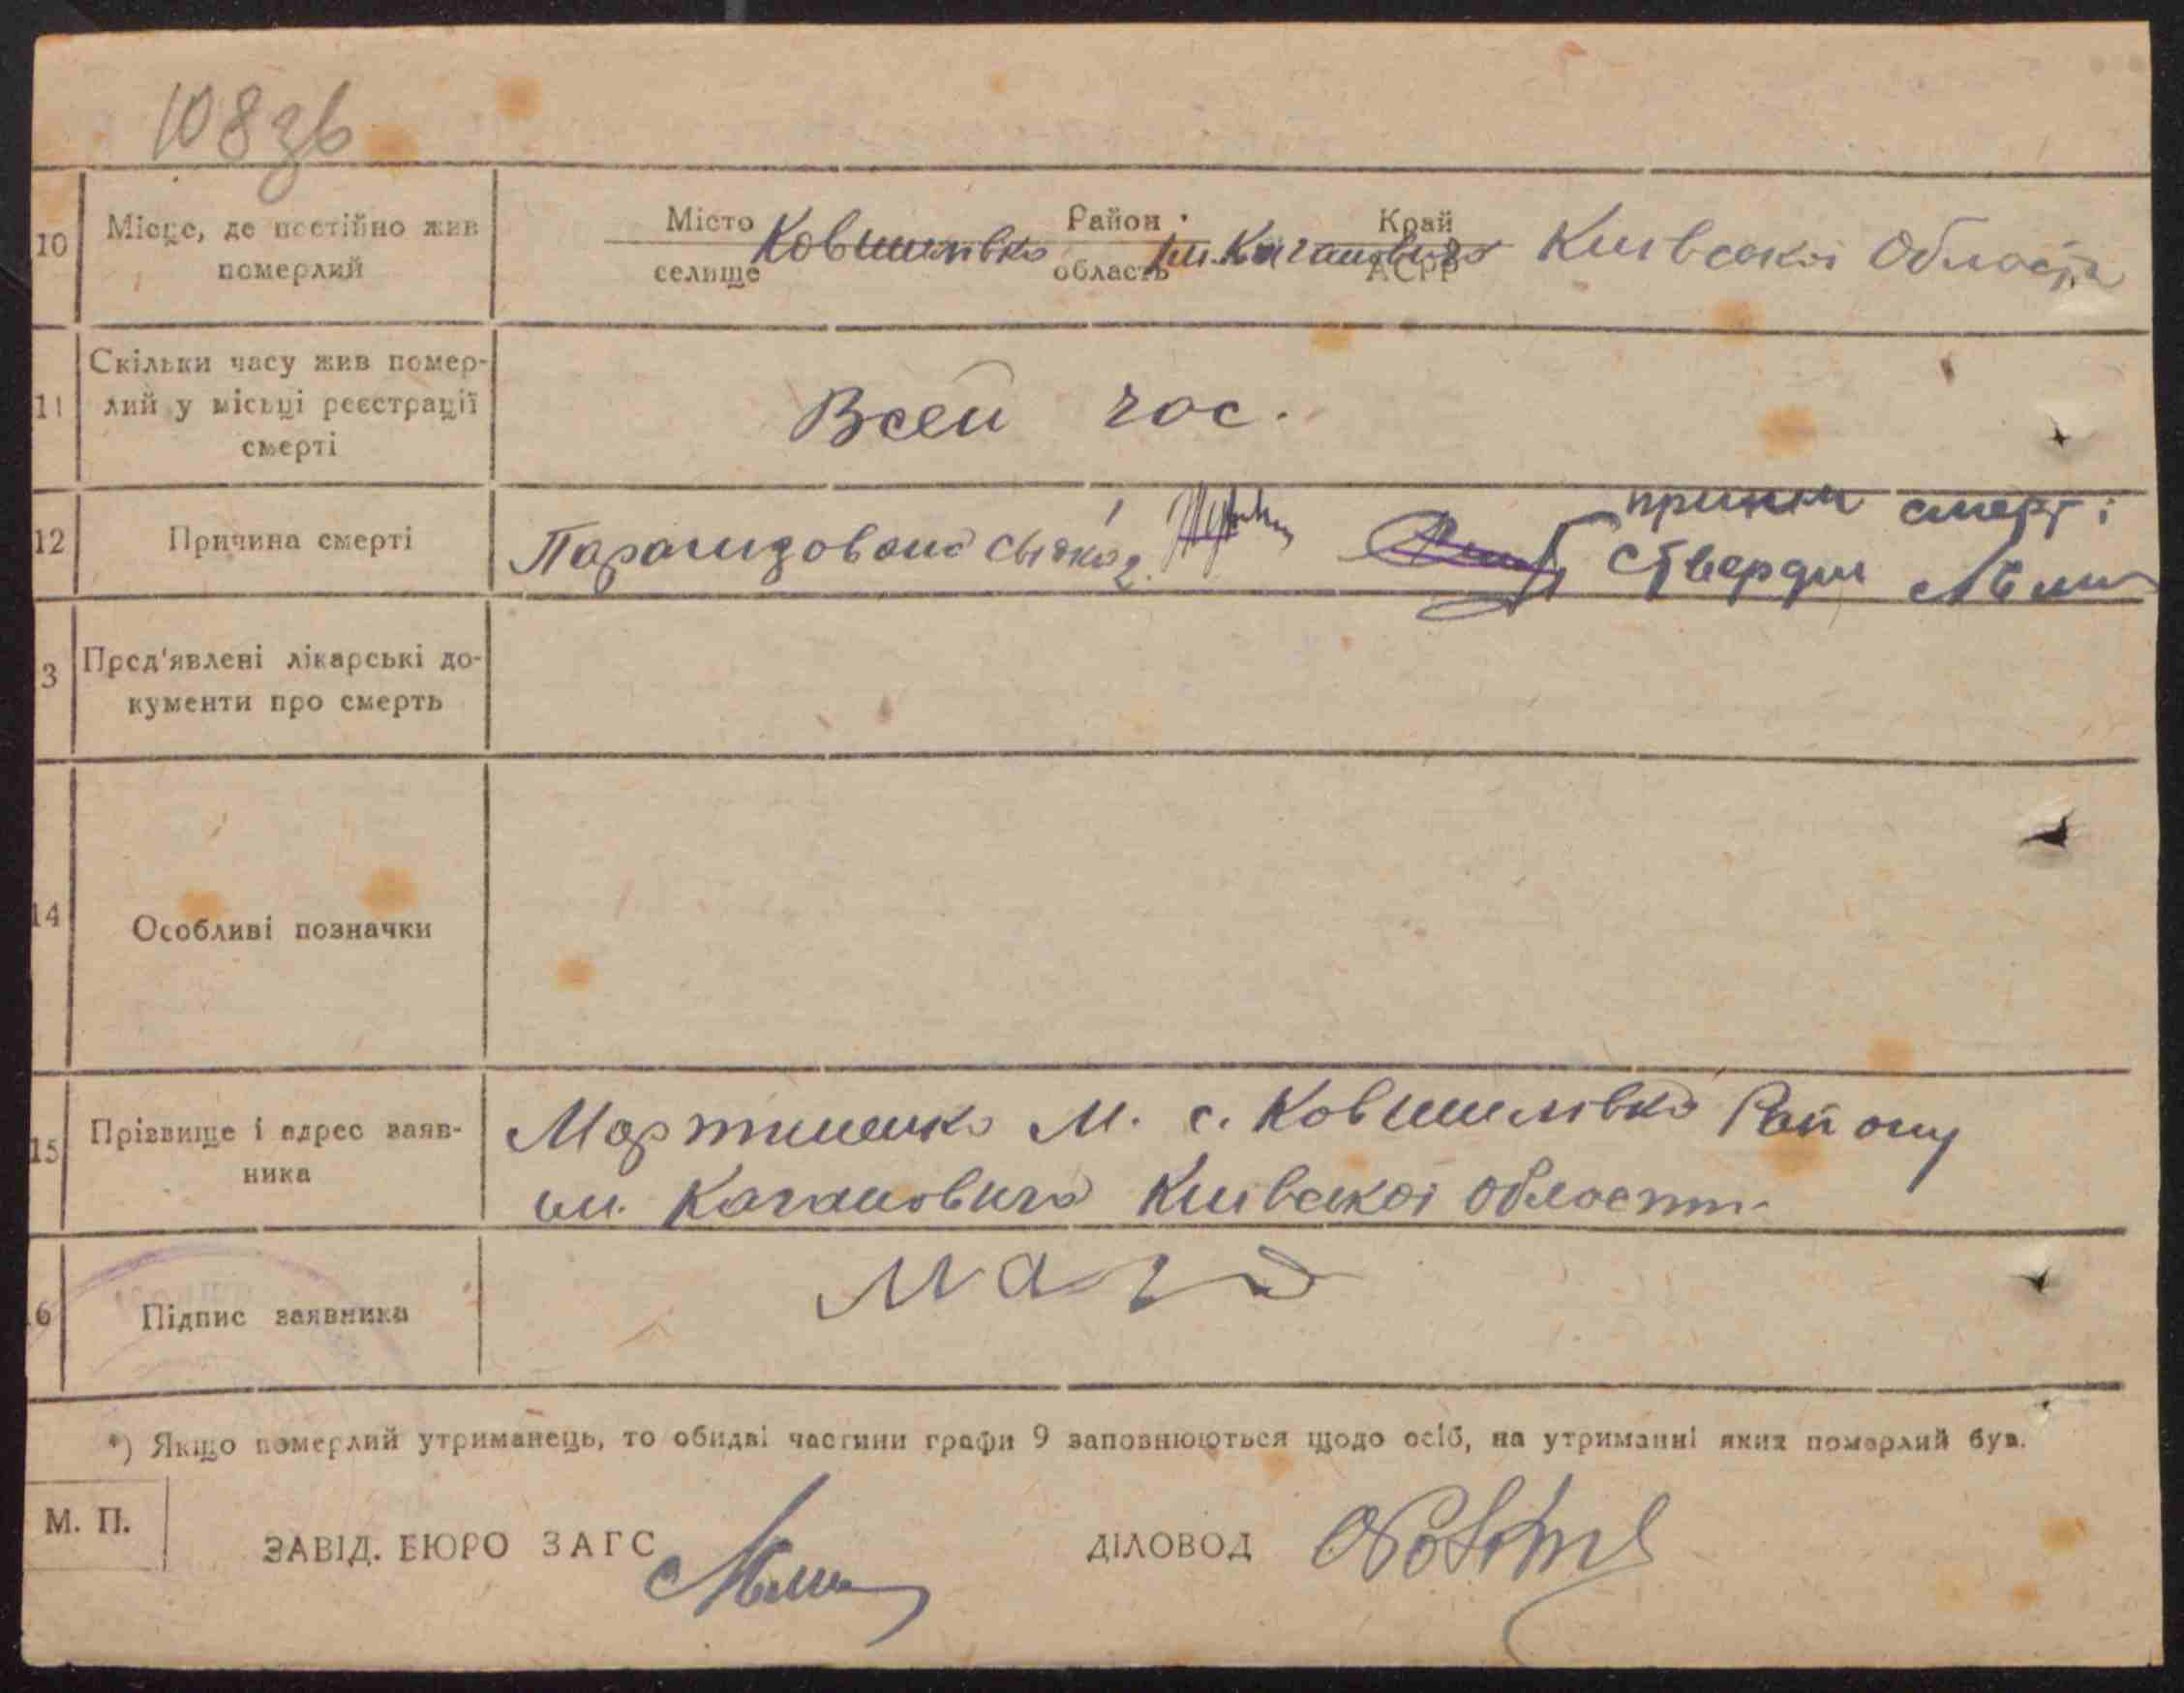 108 зв
10 Місце, де постійно жив померлий
Місто селище Ковшилівка Район область ім. Кагановича Край АСРР Київської Области
11 Скільки часу жив помер-
лий у місьці реєстрації
смерті
Всей час.
12 Причина смерті
Парализована
причини смерт:
ствердил
3 Пред'явлені лікарські до-
кументи про смерть
14 Особливі позначки
15 Прізвище і адрес заяв-
ника
Мартиненко М. с. Ковшилівка Району
им. Кагановича Київскої области
6 Підпис заявника
*) Якщо померлий утриманець, то обидві частини графи 9 заповнюються щодо осіб, на утриманні яких померлий був.
М. П.
ЗАВІД. БЮРО ЗАГС
ДІЛОВОД